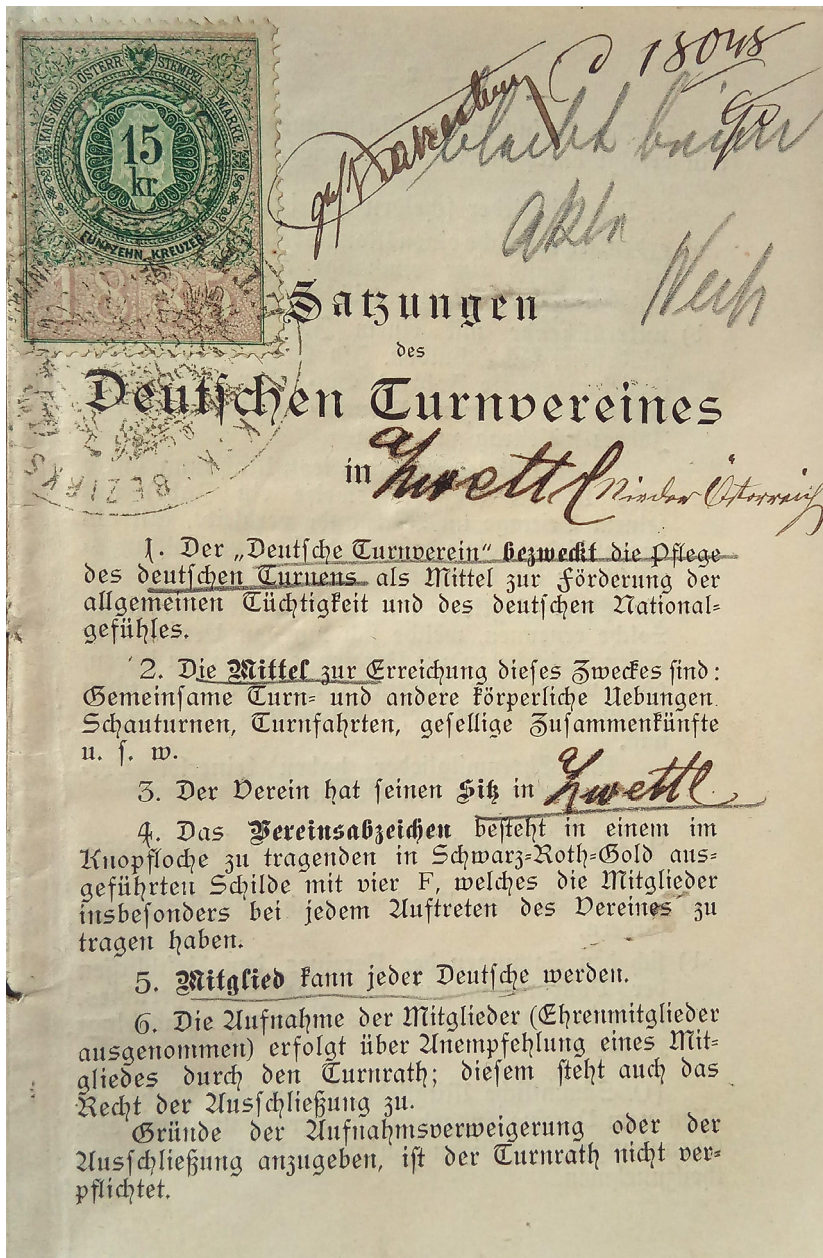 KAIS. KÖN. ÖSTERR. STEMPEL MARKE.
15
kr.
FÜNFZEHN KREUZER
1885
K. K. BEZIRKS
bleibt beim
Akte
Satzungen
des
Deutschen Turnvereines
in Zwettl Nieder Österreich
1. Der „Deutsche Turnverein“ bezweckt die Pflege
des deutschen Turnens als Mittel zur Förderung der
allgemeinen Tüchtigkeit und des deutschen National-
gefühles.
2. Die Mittel zur Erreichung dieses Zweckes sind:
Gemeinsame Turn- und andere körperliche Uebungen
Schauturnen, Turnfahrten, gesellige Zusammenkünfte
u. s. w.
3. Der Verein hat seinen Sitz in Zwettl
4. Das Vereinsabzeichen besteht in einem im
Knopfloche zu tragenden in Schwarz-Roth-Gold aus-
geführten Schilde mit vier F, welches die Mitglieder
insbesonders bei jedem Auftreten des Vereines zu
tragen haben.
5. Mitglied kann jeder Deutsche werden.
6. Die Aufnahme der Mitglieder (Ehrenmitglieder
ausgenommen) erfolgt über Anempfehlung eines Mit-
gliedes durch den Turnrath; diesem steht auch das
Recht der Ausschließung zu.
Gründe der Aufnahmsverweigerung oder der
Ausschließung anzugeben, ist der Turnrath nicht ver-
pflichtet.